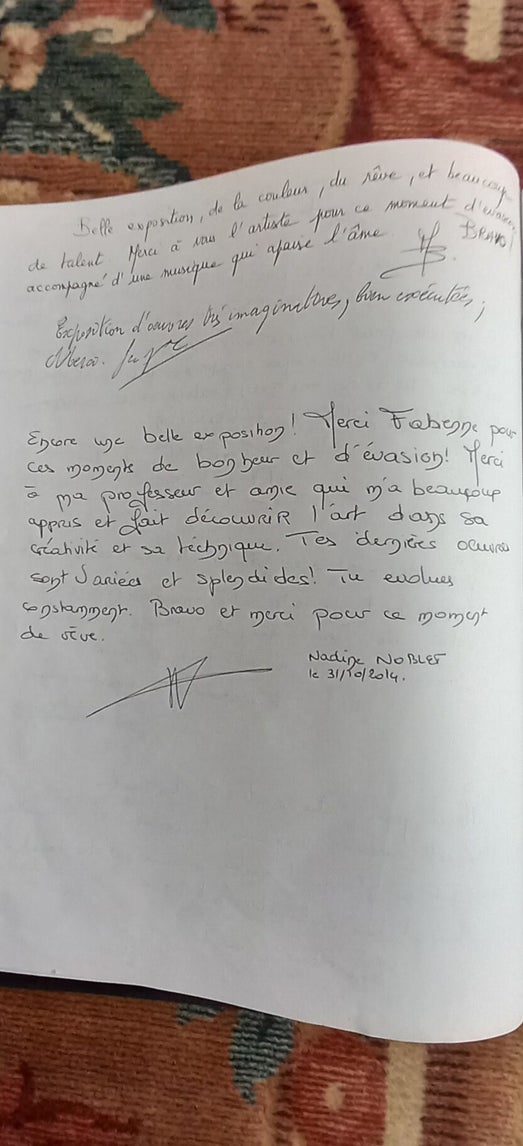 Belle exposition, de la couleur, du rêve, et beaucoup
de talent Merci à vous l'artiste pour ce moment d'évasion
accompagné d'une musique qui apaise l'âme. BRAVO!
Exposition d'oeuvres très imaginatives, bien exécutées,
Encore une belle exposition! Merci Fabenne pour
ces moments de bonheur et d'évasion! Merci
à ma professeur et amie qui m'a beaucoup
appris et fait découvrir l'art dans sa
créativité et sa téchnique. Tes dernières oeuvres
sont variées et splendides! Tu evolues
constamment. Bravo et merci pour ce moment
de rêve.
Nadine NOBLET
le 31/10/2014.